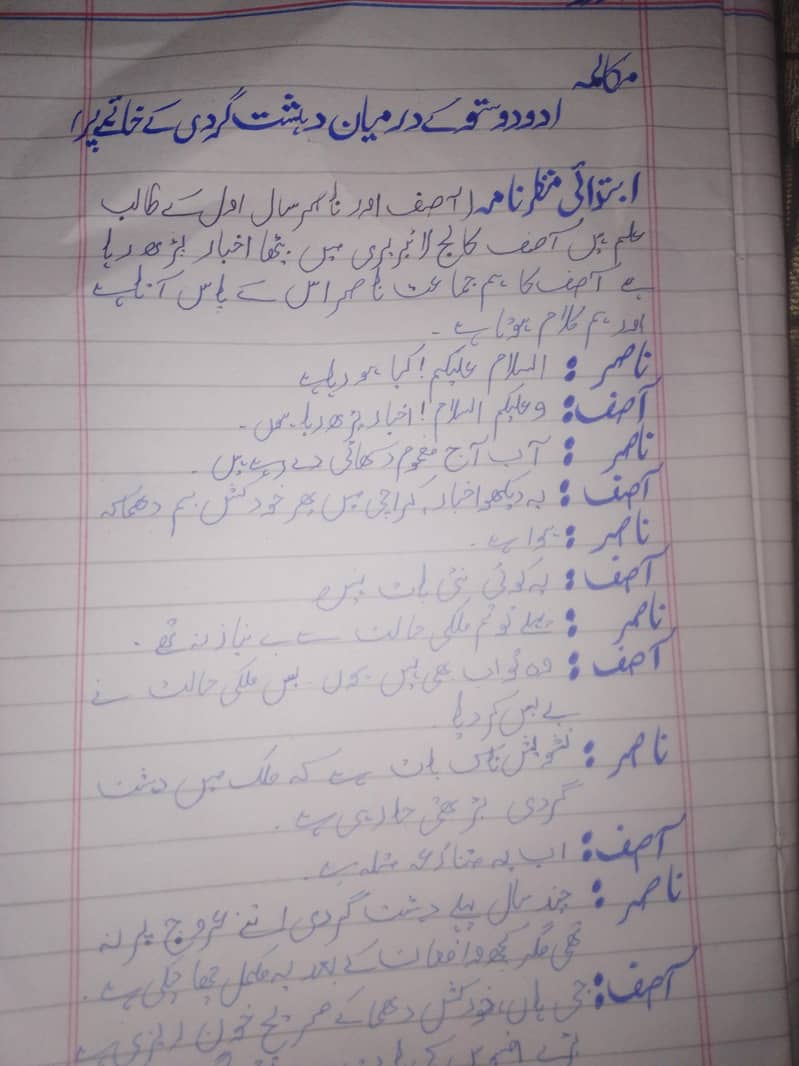 مکالمہ
(دو دوستو کے درمیان دہشت گردی کے خاتمے پر)
ابتدائی منظر نامہ (آصف اور ناصر سال اول کے طالب
علم ہیں آصف کالج لائبریری میں بیٹھا اخبار پڑھ رہا
ہے آصف کا ہم جماعت ناصر اس کے پاس آتا ہے
اور ہم کلام ہوتا ہے ۔
ناصر : السلام علیکم! کیا ہو رہا ہے
آصف: وعلیکم السلام! اخبار پڑھ رہا ہوں ۔
ناصر : آپ آج مغموم دکھائی دے رہے ہیں ۔
آصف : یہ دیکھو اخبار کراچی میں پھر خودکش بم دھماکہ
ناصر : ہوا ہے ۔
آصف : یہ کوئی نئی بات نہیں
ناصر : پہلے تو تم ملکی حالت سے بے نیاز نہ تھے ۔
آصف : وہ تو اب بھی نہیں ہوں ۔ بس ملکی حالت نے
بے بس کر دیا
ناصر : تشویش ناک بات ہے کہ ملک میں دہشت
گردی بڑھتی جا رہی ہے ۔
آصف : اب یہ متنازعہ مسئلہ ہے ۔
ناصر : چند سال پہلے دہشت گردی اتنے عروج پر نہ
تھی مگر کچھ واقعات کے بعد یہ مکمل چھا چکی ہے ۔
آصف : جی ہاں، خودکش دھماکے صریح خون ریزی ہے